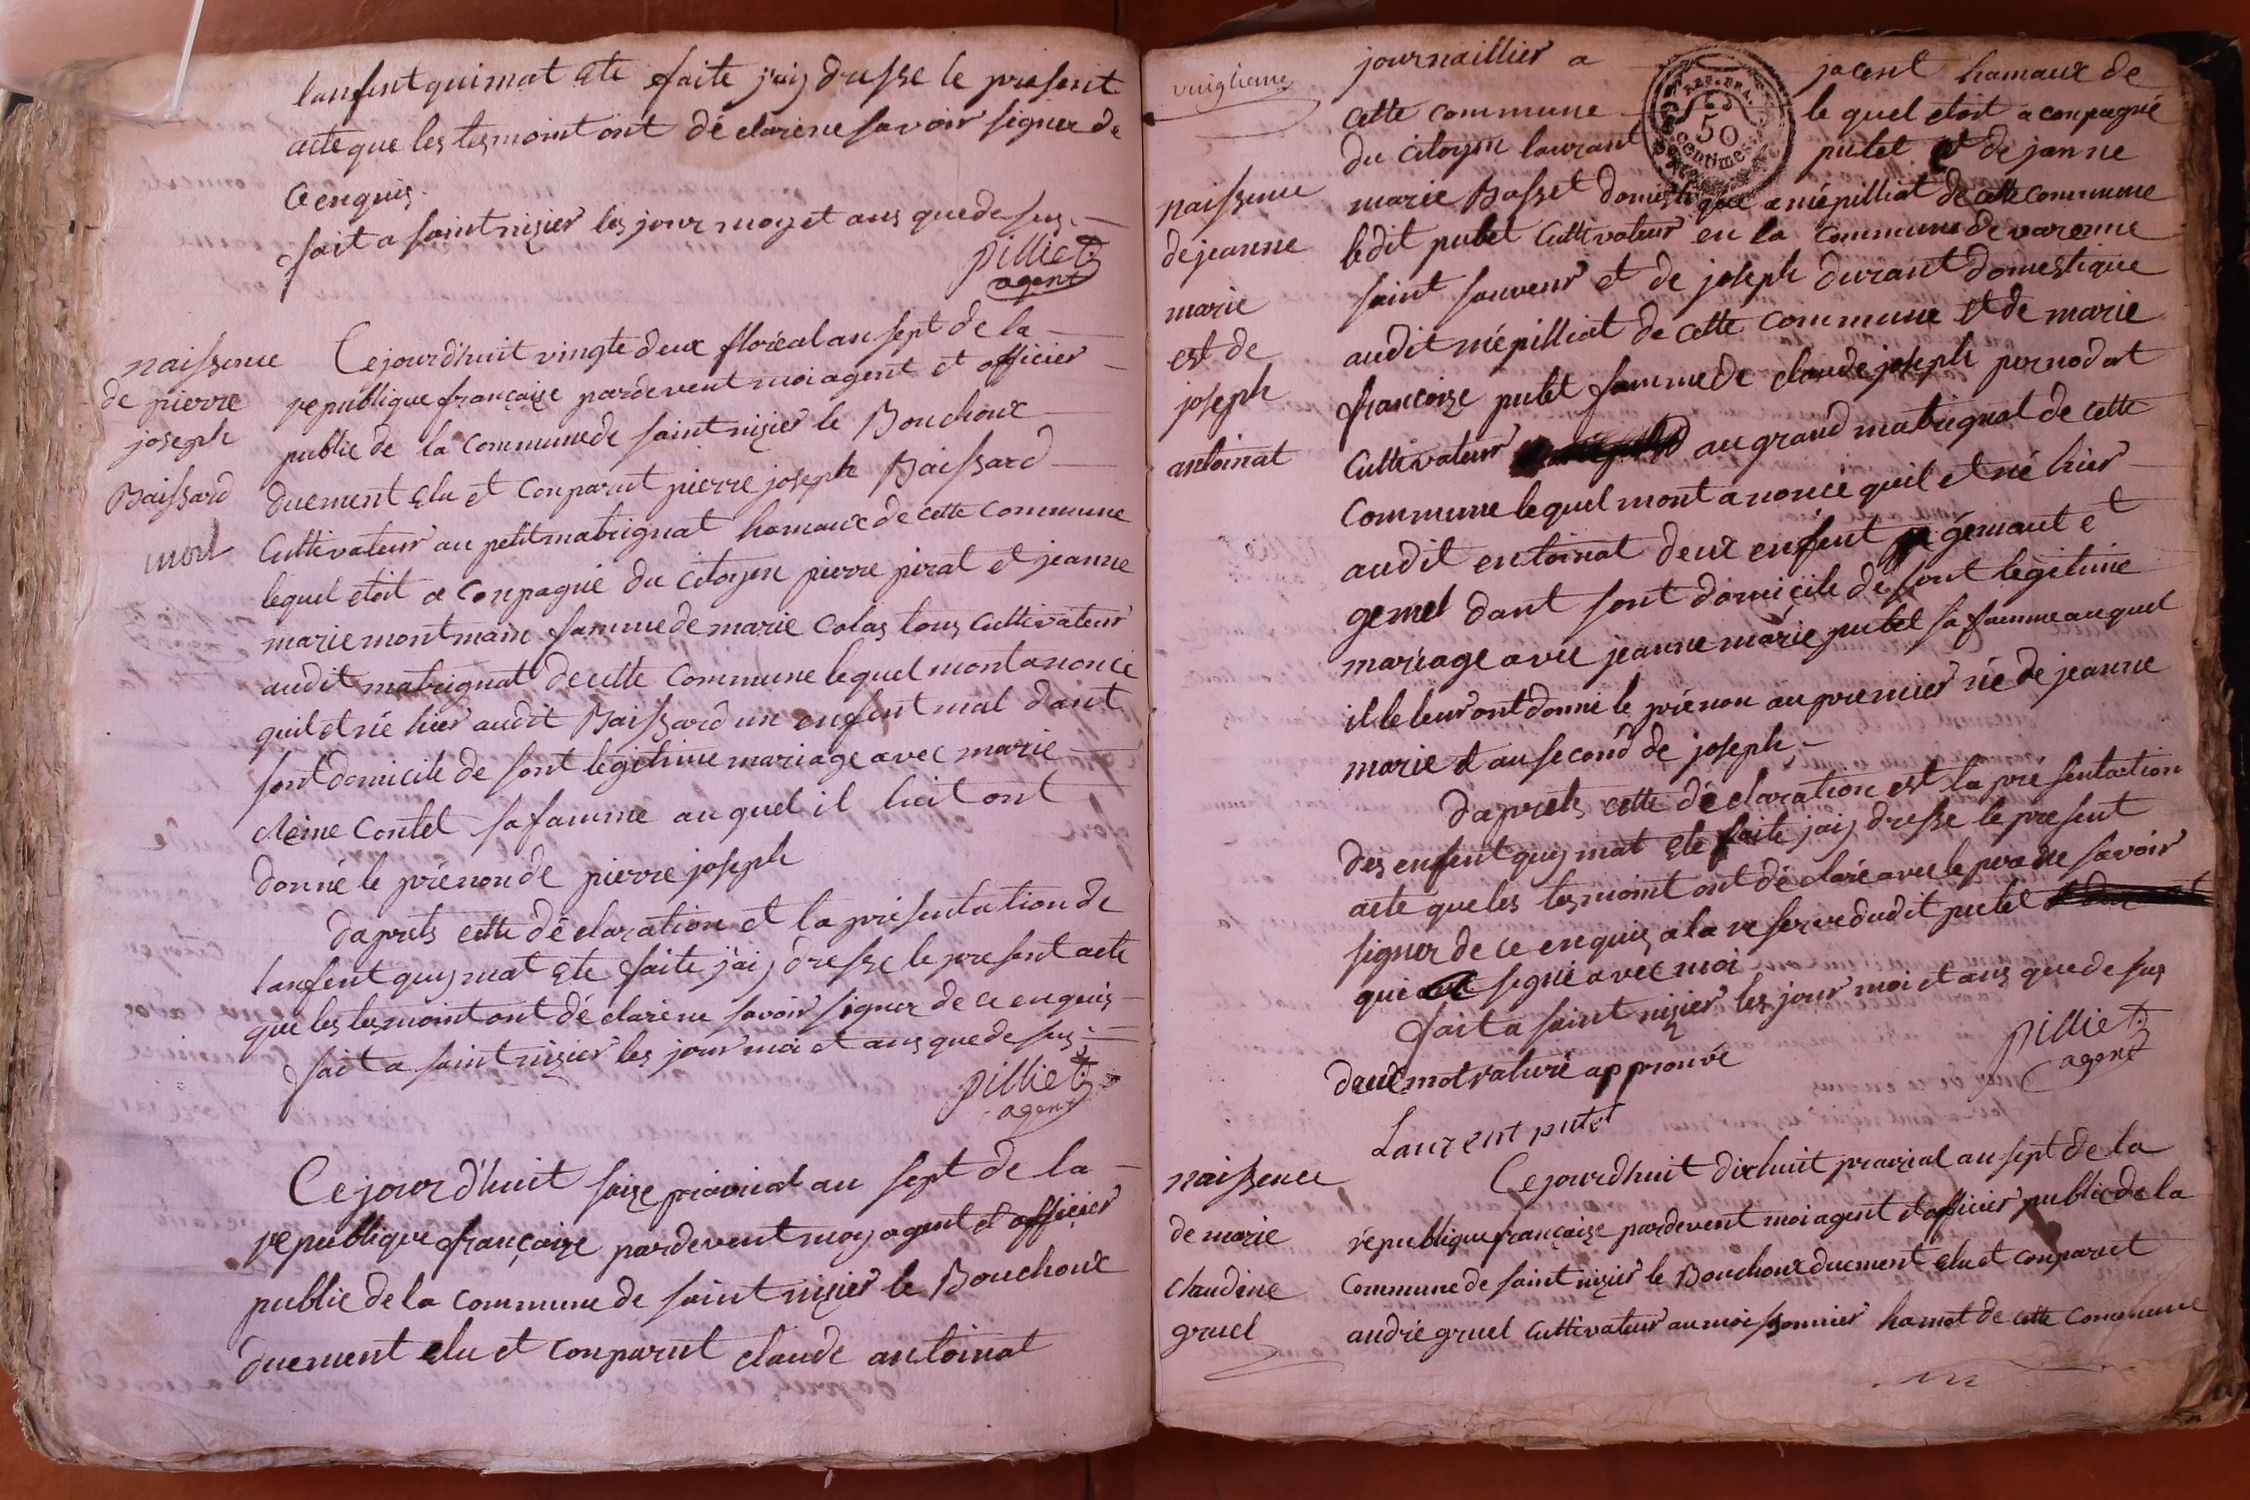 lanfent qui mat ete faite jaij dresse le present
acte que les tesmoint ont dé clare ne savoir signer de
ce enquis.
fait a saint nizier les jour moy et ans que de sus
pilliet
agent
naissence
de pierre
joseph
Baissard
mort
Ce jourd'huit vingte deux floréal an sept de la
republique françaize pardevent moi agent et officier
public de la commune de saint nizier le Bouchoux
duement elu et conparut pierre joseph Baissard
Cultivateur au petit matrignat hamaux de cette commune
lequel etoit a conpagnié du citoyen pierre pirat et jeanne
marie montmain famme de marie colas tous cultivateur
audit matrignat de cette commune lequel mont anoncé
quil et né hier audit Baissard un enfent mal dant
sont domicile de sont legitime mariage avec marie
contet sa famme au quel il ont
donné le prénon de pierre joseph
daprets cette dé claration et la présentation de
lanfent quij mat ete faite jaij dresse le present acte
que les tesmoint ont dé clare ne savoir signer de ce enquis
fait a saint nizier les jour moi et ans que de sus
pilliet
agent
Ce jour d'huit saize prairial an sept de la
republique françaize pardevent moy agent et officier
public de la commune de saint nizier le Bouchoux
duement elu et conparut claude antoinat
naissence
de jeanne
marie
est de
joseph
antoinat
journaillier a jacent hamaux de
cette commune le quel etoit a conpagné
du citoyen laurant putet et de janne
marie Basset domestique a mépilliat de cette commune
ledit putet cultivateur en la commune de varenne
saint sauveur et de joseph durant domestique
audit mépilliat de cette commune et de marie
francoize putet famme de claude joseph pernodat
Cultivateur au grand matrignat de cette
Commune lequel mont anoncé quil et né hier
audit entoinat deux enfent gémaut et
gemel dant sont domicile de sont legitime
mariage avec jeanne marie putel sa famme auquel
il le leur ont donné le prénon au premier née de jeanne
marie et au second de joseph
daprets cette dé claration est la pré sentation
des enfent quij mat ete faite jaij dresse le present
acte que les tesmoint ont dé claré avec le pere ne savoir
signer de ce enquis a la re serve dudit putel
qui segné avec moi
fait a saint nizier les jour moi et ans que de sus
pilliet
agent
deux mot raturé approuvé
Laurent putet
naissence
de marie
claudine
gruel
Ce jourd'huit dixhuit prairial an sept de la
république françaize pardevent moi agent et officier public de la
Commune de saint nizier le Bouchoux duement elu et conparut
andrié gruel cultivateur au moissonnier hamot de cette commune